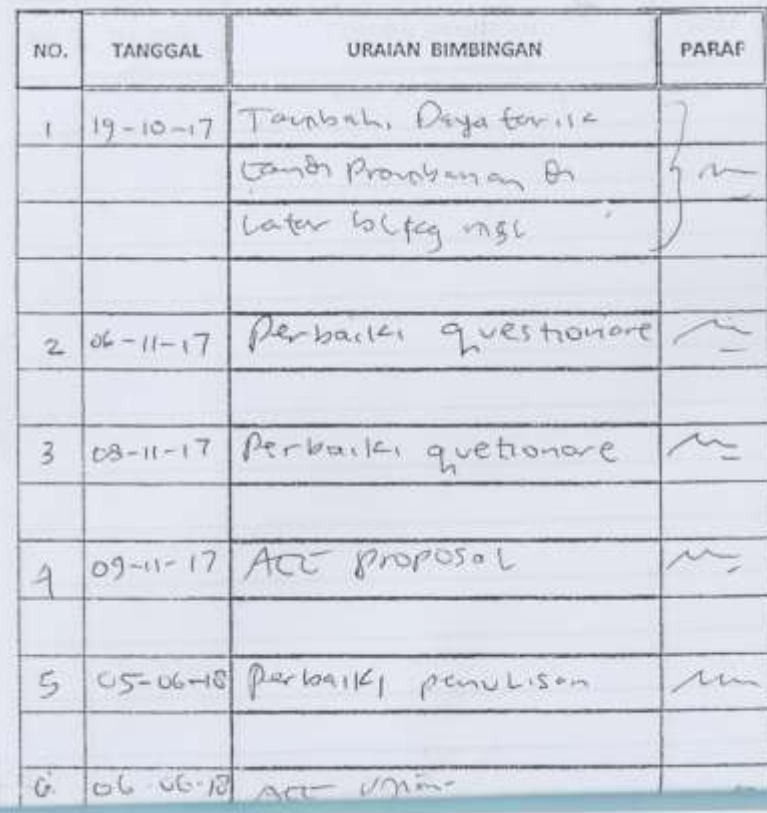 NO. TANGGAL URAIAN BIMBINGAN PARAF
1 19-10-17 Tambah, Daya tarik
candi Prambanan di
Latar blkg msl
2 06-11-17 Perbaiki questionare
3 08-11-17 Perbaiki quetionare
4 09-11-17 ACC proposal
5 05-06-18 Perbaiki penulisan
6. 06-06-18 ACC